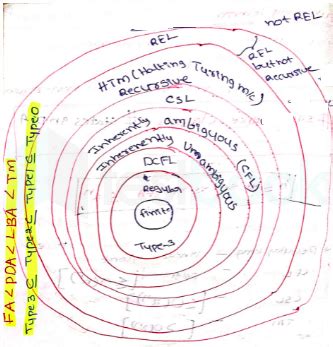 not REL
REL
REL
but not
Recursive
HTM (Halting Turing m/c)
Recursive
CSL
Inherently ambiguous
Inherenently Unambiguous
(CFL)
DCFL
Regular
finite
Type-3
FA < PDA < LBA < TM
Type3 ⊆ Type2 ⊆ Type1 ⊆ Type0